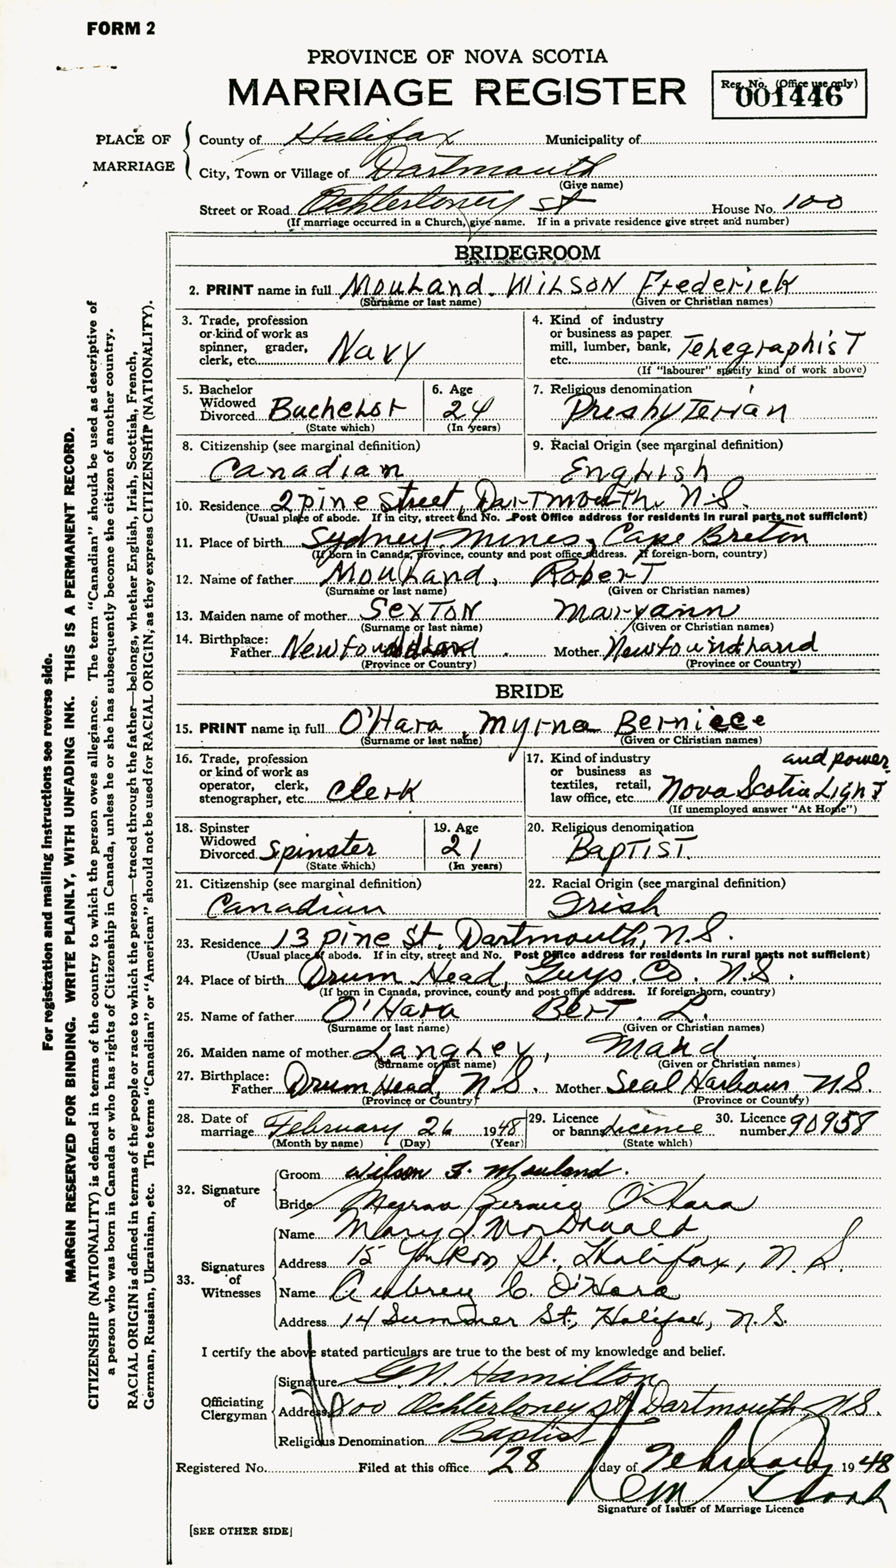 FORM 2
PROVINCE OF NOVA SCOTIA
MARRIAGE REGISTER
Reg. No. (Office use only)
001446
PLACE OF MARRIAGE
County of Halifax Municipality of
City, Town or Village of Dartmouth
(Give name)
Street or Road Ochterloney St House No. 100
(If marriage occurred in a Church, give name. If in a private residence give street and number)
BRIDEGROOM
2. PRINT name in full Mouland Wilson Frederick
(Surname or last name) (Given or Christian names)
3. Trade, profession or kind of work as spinner, grader, clerk, etc. Navy
4. Kind of industry or business as paper mill, lumber, bank, etc. Telegraphist
(If "labourer" specify kind of work above)
5. Bachelor Widowed Divorced Bachelor
(State which)
6. Age 24
(In years)
7. Religious denomination Presbyterian
8. Citizenship (see marginal definition) Canadian
9. Racial Origin (see marginal definition) English
10. Residence 2 pine Street, Dartmouth N.S.
(Usual place of abode. If in city, street and No. Post Office address for residents in rural parts not sufficient)
11. Place of birth Sydney Mines, Cape Breton
(If born in Canada, province, county and post office address. If foreign-born, country)
12. Name of father Mouland, Robert
(Surname or last name) (Given or Christian names)
13. Maiden name of mother Sexton Maryann
(Surname or last name) (Given or Christian names)
14. Birthplace: Father Newfoundland Mother Newfoundland
(Province or Country) (Province or Country)
BRIDE
15. PRINT name in full O'Hara Myrna Berniece
(Surname or last name) (Given or Christian names)
16. Trade, profession or kind of work as operator, clerk, stenographer, etc. Clerk
17. Kind of industry or business as textiles, retail, law office, etc Nova Scotia Light and power
(If unemployed answer "At Home")
18. Spinster Widowed Divorced Spinster
(State which)
19. Age 21
(In years)
20. Religious denomination Baptist
21. Citizenship (see marginal definition) Canadian
22. Racial Origin (see marginal definition) Irish
23. Residence 13 pine St. Dartmouth, N.S.
(Usual place of abode. If in city, street and No. Post Office address for residents in rural parts not sufficient)
24. Place of birth Drum Head, Guys. Co. N.S.
(If born in Canada, province, county and post office address. If foreign-born, country)
25. Name of father O'Hara Bert L.
(Surname or last name) (Given or Christian names)
26. Maiden name of mother Langley, Maud
(Surname or last name) (Given or Christian names)
27. Birthplace: Father Drum Head, N.S. Mother Seal Harbour N.S.
(Province or Country) (Province or Country)
28. Date of marriage February 26 1948
(Month by name) (Day) (Year)
29. Licence or banns Licence
(State which)
30. Licence number 90958
32. Signature of
Groom Wilson F. Mouland.
Bride Myrna Bernice O'Hara
33. Signatures of Witnesses
Name Mary J. McDonald
Address 15 Yukon St., Halifax, N.S.
Name Aubrey C. O'Hara
Address 14 Summer St., Halifax, N.S.
I certify the above stated particulars are true to the best of my knowledge and belief.
Officiating Clergyman
Signature G.N. Hamilton
Address 100 Ochterloney St Dartmouth, N.S.
Religious Denomination Baptist
Registered No. Filed at this office 28 day of February 1948
Signature of Issuer of Marriage Licence
[SEE OTHER SIDE]
For registration and mailing instructions see reverse side.
MARGIN RESERVED FOR BINDING. WRITE PLAINLY, WITH UNFADING INK. THIS IS A PERMANENT RECORD.
CITIZENSHIP (NATIONALITY) is defined in terms of the country to which the person owes allegiance. The term "Canadian" should be used as descriptive of
a person who was born in Canada or who has rights of Citizenship in Canada, unless he or she has subsequently become the citizen of another country.
RACIAL ORIGIN is defined in terms of the people or race to which the person—traced through the father—belongs, whether English, Irish, Scottish, French,
German, Russian, Ukrainian, etc. The terms "Canadian" or "American" should not be used for RACIAL ORIGIN, as they express CITIZENSHIP (NATIONALITY).